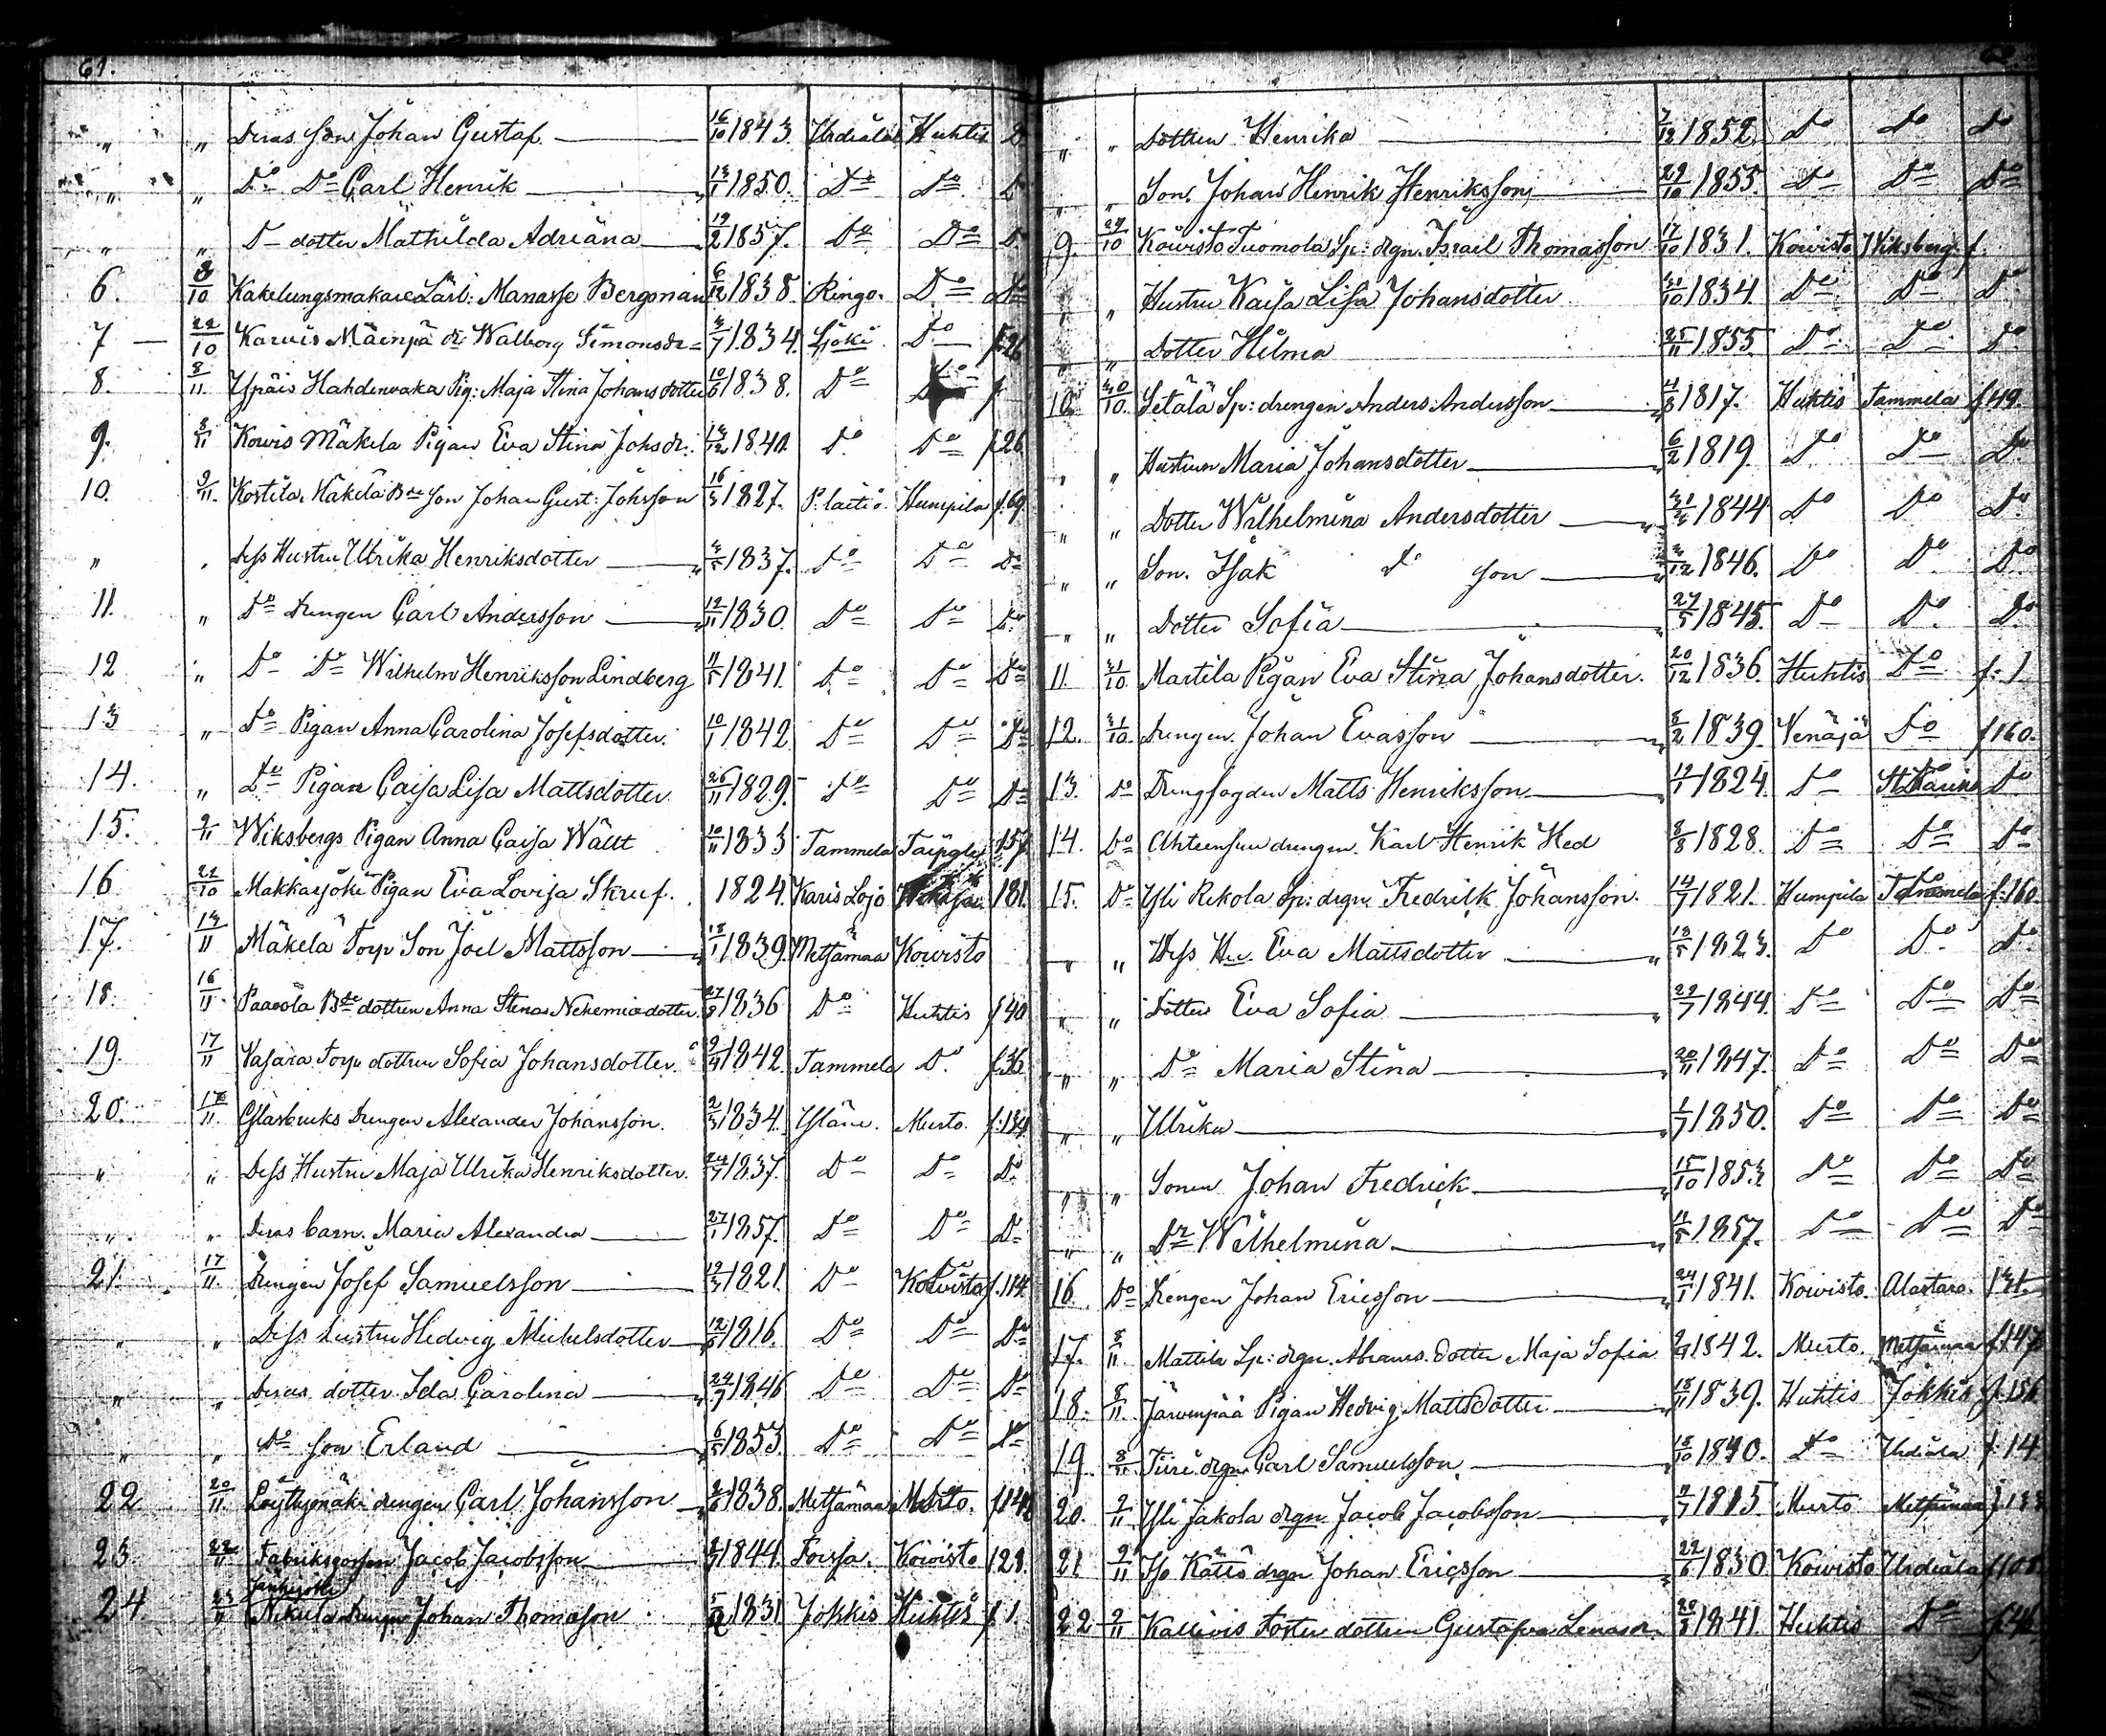 61.
" " Deras son Johan Gustaf 16/10 1843. Urdiala Huhtis D
" " Do Do Carl Henrik 13/1 1850. Do Do D
" " D dotter Mathilda Adriana 19/2 1857. Do Do D
6. 8/10 Kakelungsmakare Lärl: Manasse Bergman 6/12 1838. Ringo. Do Do
7 22/10 Karvis Mäenpä dr Walborg Simonsdr 3/7 1834. Ljöki Do f.26
8. 8/11. Ypäis Hahdenvaka Pig: Maja Stina Johans dotter 10/6 1838. Do Do f
9. 8/11 Kowis Mäkela Pigan Eva Stina Johsdr. 13/12 1840. Do Do f.26
10. 9/11. Kostila Mäkelä Bde Son Johan Gust: Johsson 16/3 1827. P. laitio. Humpila f.69
" . dess Hustru Ulrika Henriksdotter 3/5 1837. Do Do Do
11. " Do Drengen Carl Andersson 12/11 1830. Do Do Do
12 " Do Do Wilhelm Henriksson Lindberg 11/5 1841. Do Do Do
13 " Do Pigan Anna Carolina Josefsdotter. 10/1 1842 Do Do Do
14. " Do Pigan Caisa Lisa Mattsdotter 26/11 1829. Do Do Do
15. 9/11 Wiksbergs Pigan Anna Caisa Wällt 10/11 1833 Tammela 157
16 21/10 Makkarjoki Pigan Eva Lovisa Skruf. 1824. Karis Lojo 181.
17. 14/11 Mäkelä Torp Son Joel Mattsson 18/1 1839. Metsämaa Kowisto
18. 16/11. Paavola Bde dottren Anna Stena Nehemiædotter 27/8 1836 Do Huhtis f.40
19. 17/11 Vasara Torp dottren Sofia Johansdotter. 9/4 1842. Tammela Do f.36
20. 17/11. Glasbruks Drengen Alexander Johansson. 2/3 1834. Yläne. Murto. f.134
" " Dess Hustru Maja Ulrika Henriksdotter. 1837. Do Do Do
" " Deras barn. Maria Alexandra 27/1 1857. Do Do Do
21. 17/11. Drengen Josef Samuelsson 19/3 1821. Do Kowisto f.114
" " Dess hustru Hedvig Michelsdotter 12/6 1816. Do Do Do
" " Deras dotter Ida Carolina 29/7 1846 Do Do Do
" " Do son Erland 6/5 1853. Do Do Do
22. 20/11. Löytty mäki drengen Carl Johansson 1838. Metsämaa Murto.
23. 22/11 Fabriksgossen Jacob Jacobsson 1844. Forssa. Kowisto 128.
24. 23/11 Nikula drengen Johan Thomason. 1831 Jokkis Huhtis f.1.
62
" " Dottren Henrika 7/12 1852. Do Do Do
" " Son. Johan Henrik Henriksson 29/10 1855. Do Do Do
9. 29/10 Kowisto Tuomola Sp: drgn. Israel Thomasson 17/10 1831. Kowisto Wiksberg f.
" " Hustru Kaisa Lisa Johansdotter 31/10 1834 Do Do Do
" " Dotter Hilma 25/11 1855 Do Do Do
10. 30/10. Setälä Sp: drengen Anders Andersson 1817. Huhtis Tammela f.49.
" " Hustrun Maria Johansdotter 6/2 1819. Do Do Do
" " Dotter Wilhelmina Andersdotter 1844 Do Do Do
" " Son. Isak Do son 3/12 1846. Do Do Do
" " Dotter Sofia 27/5 1845. Do Do Do
11. 31/10. Martila Pigan Eva Stina Johansdotter. 20/12 1836. Huhtis Do f: 1
12. 31/10. Drengen. Johan Evasson 8/2 1839. Venäjä Do f.160.
13. Do Drengfogden Matts Henriksson 1824. Do St. Karins Do
14. Do drengen. Karl Henrik Hed 8/8 1828. Do Do Do
15. Do Yli Rekola Sp: drgn. Fredrik Johansson. 14/7 1821. Humpila Tammela f.160.
" " Dess Hu. Eva Mattsdotter 18/5 1823. Do Do Do
" " Dotter Eva Sofia 29/7 1844. Do Do Do
" " Do Maria Stina 20/11 1847. Do Do Do
" " Ulrika 1/7 1850. Do Do Do
" " Sonen Johan Fredrick 15/10 1853. Do Do Do
" " Dr Wilhelmina 11/5 1857. Do Do Do
16. Do Drengen Johan Ericsson 24/1 1841. Kowisto. Alastaro.
17. 8/11 Mattila Sp: drgn. Abrams. dotter Maja Sofia 1842. Murto. Metsämaa f.147
18. 8/11. Järwenpää Pigan Hedvig Mattsdotter 18/11 1839. Huhtis Jokkis f.156
19. 8/11. Tiiri drgn Carl Samuelsson 18/10 1840. Do Urdiala f.14
20. 9/11 Yli Jakola drgn Jacob Jacobsson Murto Metsämaa
21 9/11 Iso Kättö drgn Johan Ericsson 22/6 1830 Kowisto Urdiala
22 9/11 Kallivis Foster dottren Gustafva Lenasdr. 20/8 1841. Huhtis Do f.46